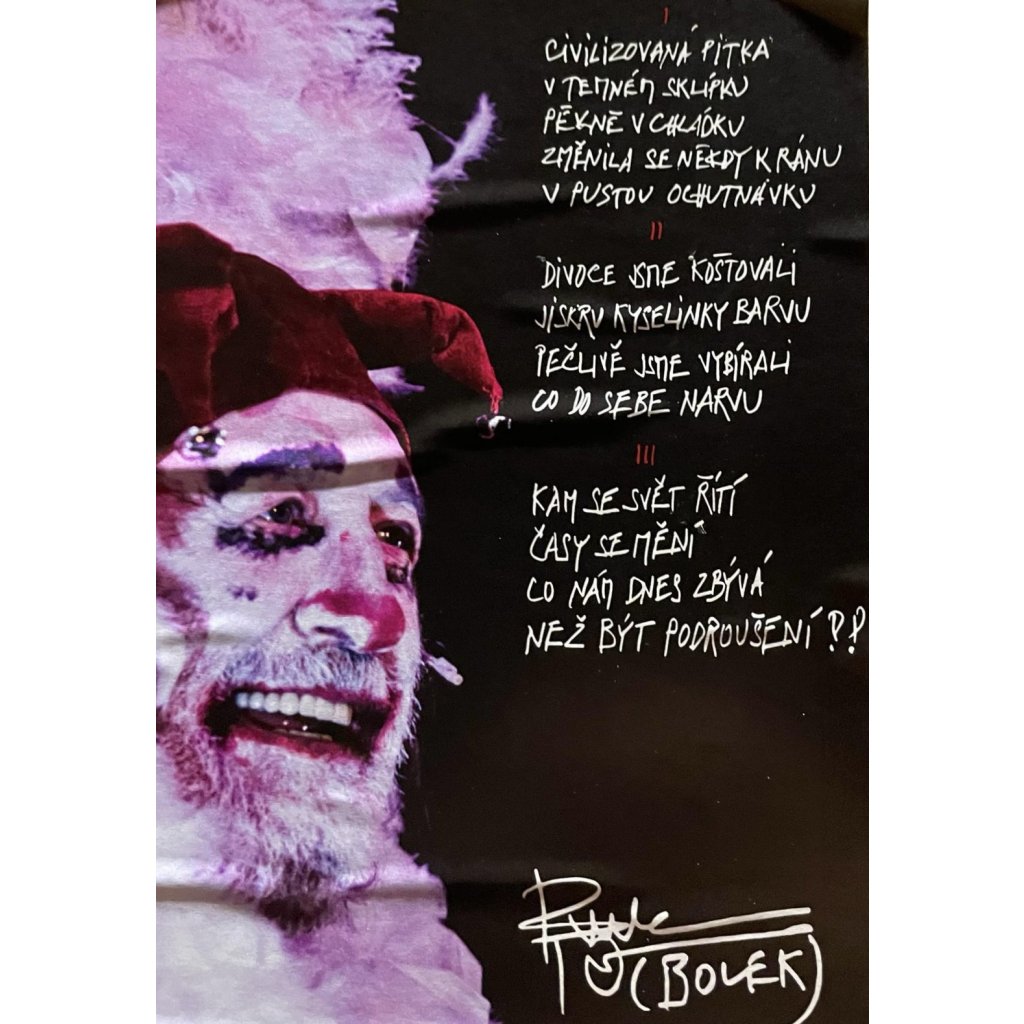 I
CIVILIZOVANÁ PITKA
V TEMNÉM SKLÍPKU
PĚKNĚ V CHLÁDKU
ZMĚNILA SE NĚKDY K RÁNU
V PUSTOU OCHUTNÁVKU
II
DIVOCE JSME KOŠTOVALI
JISKRU KYSELINKY BARVU
PEČLIVĚ JSME VYBÍRALI
CO DO SEBE NARVU
III
KAM SE SVĚT ŘÍTÍ
ČASY SE MĚNÍ
CO NÁM DNES ZBÝVÁ
NEŽ BÝT PODROUŠENÍ??
(BOLEK)